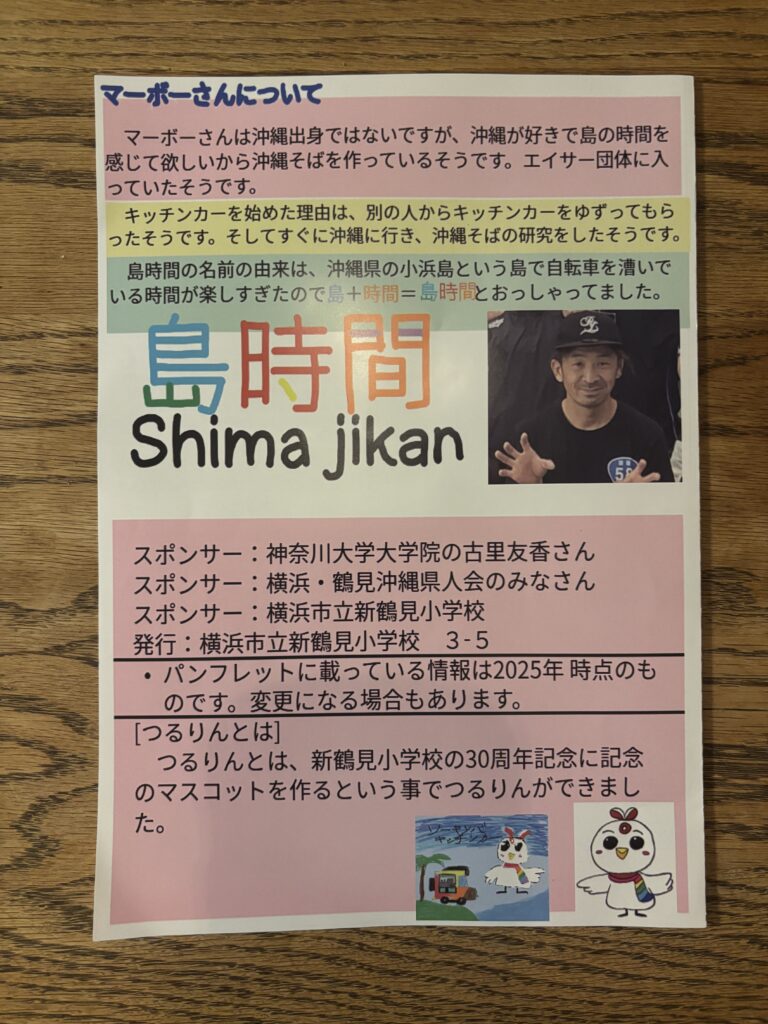 マーボーさんについて
マーボーさんは沖縄出身ではないですが、沖縄が好きで島の時間を
感じて欲しいから沖縄そばを作っているそうです。エイサー団体に入
っていたそうです。
キッチンカーを始めた理由は、別の人からキッチンカーをゆずってもら
ったそうです。そしてすぐに沖縄に行き、沖縄そばの研究をしたそうです。
島時間の名前の由来は、沖縄県の小浜島という島で自転車を漕いで
いる時間が楽しすぎたので島＋時間＝島時間とおっしゃってました。
島時間
Shima jikan
スポンサー：神奈川大学大学院の古里友香さん
スポンサー：横浜・鶴見沖縄県人会のみなさん
スポンサー：横浜市立新鶴見小学校
発行：横浜市立新鶴見小学校　３-５
・パンフレットに載っている情報は2025年 時点のも
のです。変更になる場合もあります。
[つるりんとは]
つるりんとは、新鶴見小学校の30周年記念に記念
のマスコットを作るという事でつるりんができまし
た。